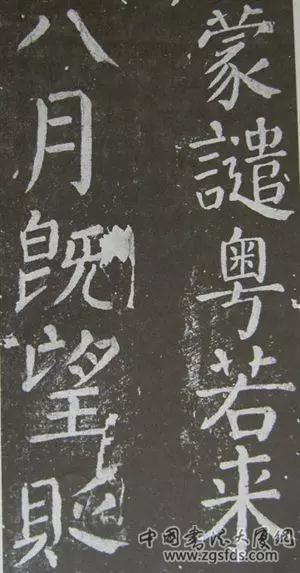 蒙譴粤若来
八月既望則
中國書法大展網
www.zgsfds.com